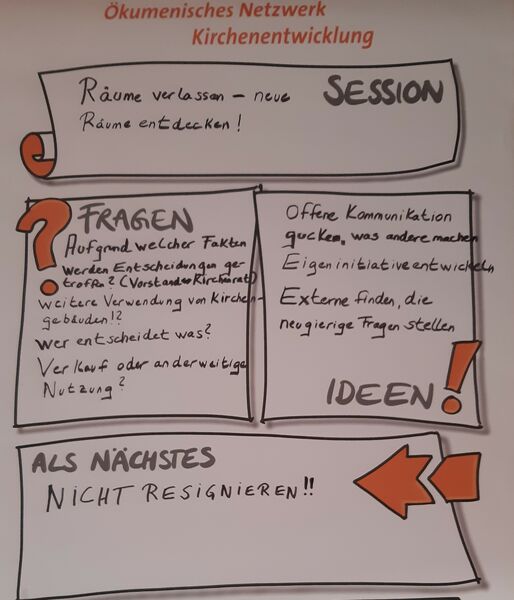 Ökumenisches Netzwerk
Kirchenentwicklung
Räume verlassen – neue
Räume entdecken!
SESSION
FRAGEN
Aufgrund welcher Fakten
werden Entscheidungen ge-
troffen? (Vorstand o Kirchenrat)
weitere Verwendung von Kirchen-
gebäuden!?
wer entscheidet was?
Verkauf oder anderweitige
Nutzung?
Offene Kommunikation
gucken, was andere machen
Eigeninitiative entwickeln
Externe finden, die
neugierige Fragen stellen
IDEEN!
ALS NÄCHSTES
NICHT RESIGNIEREN!!